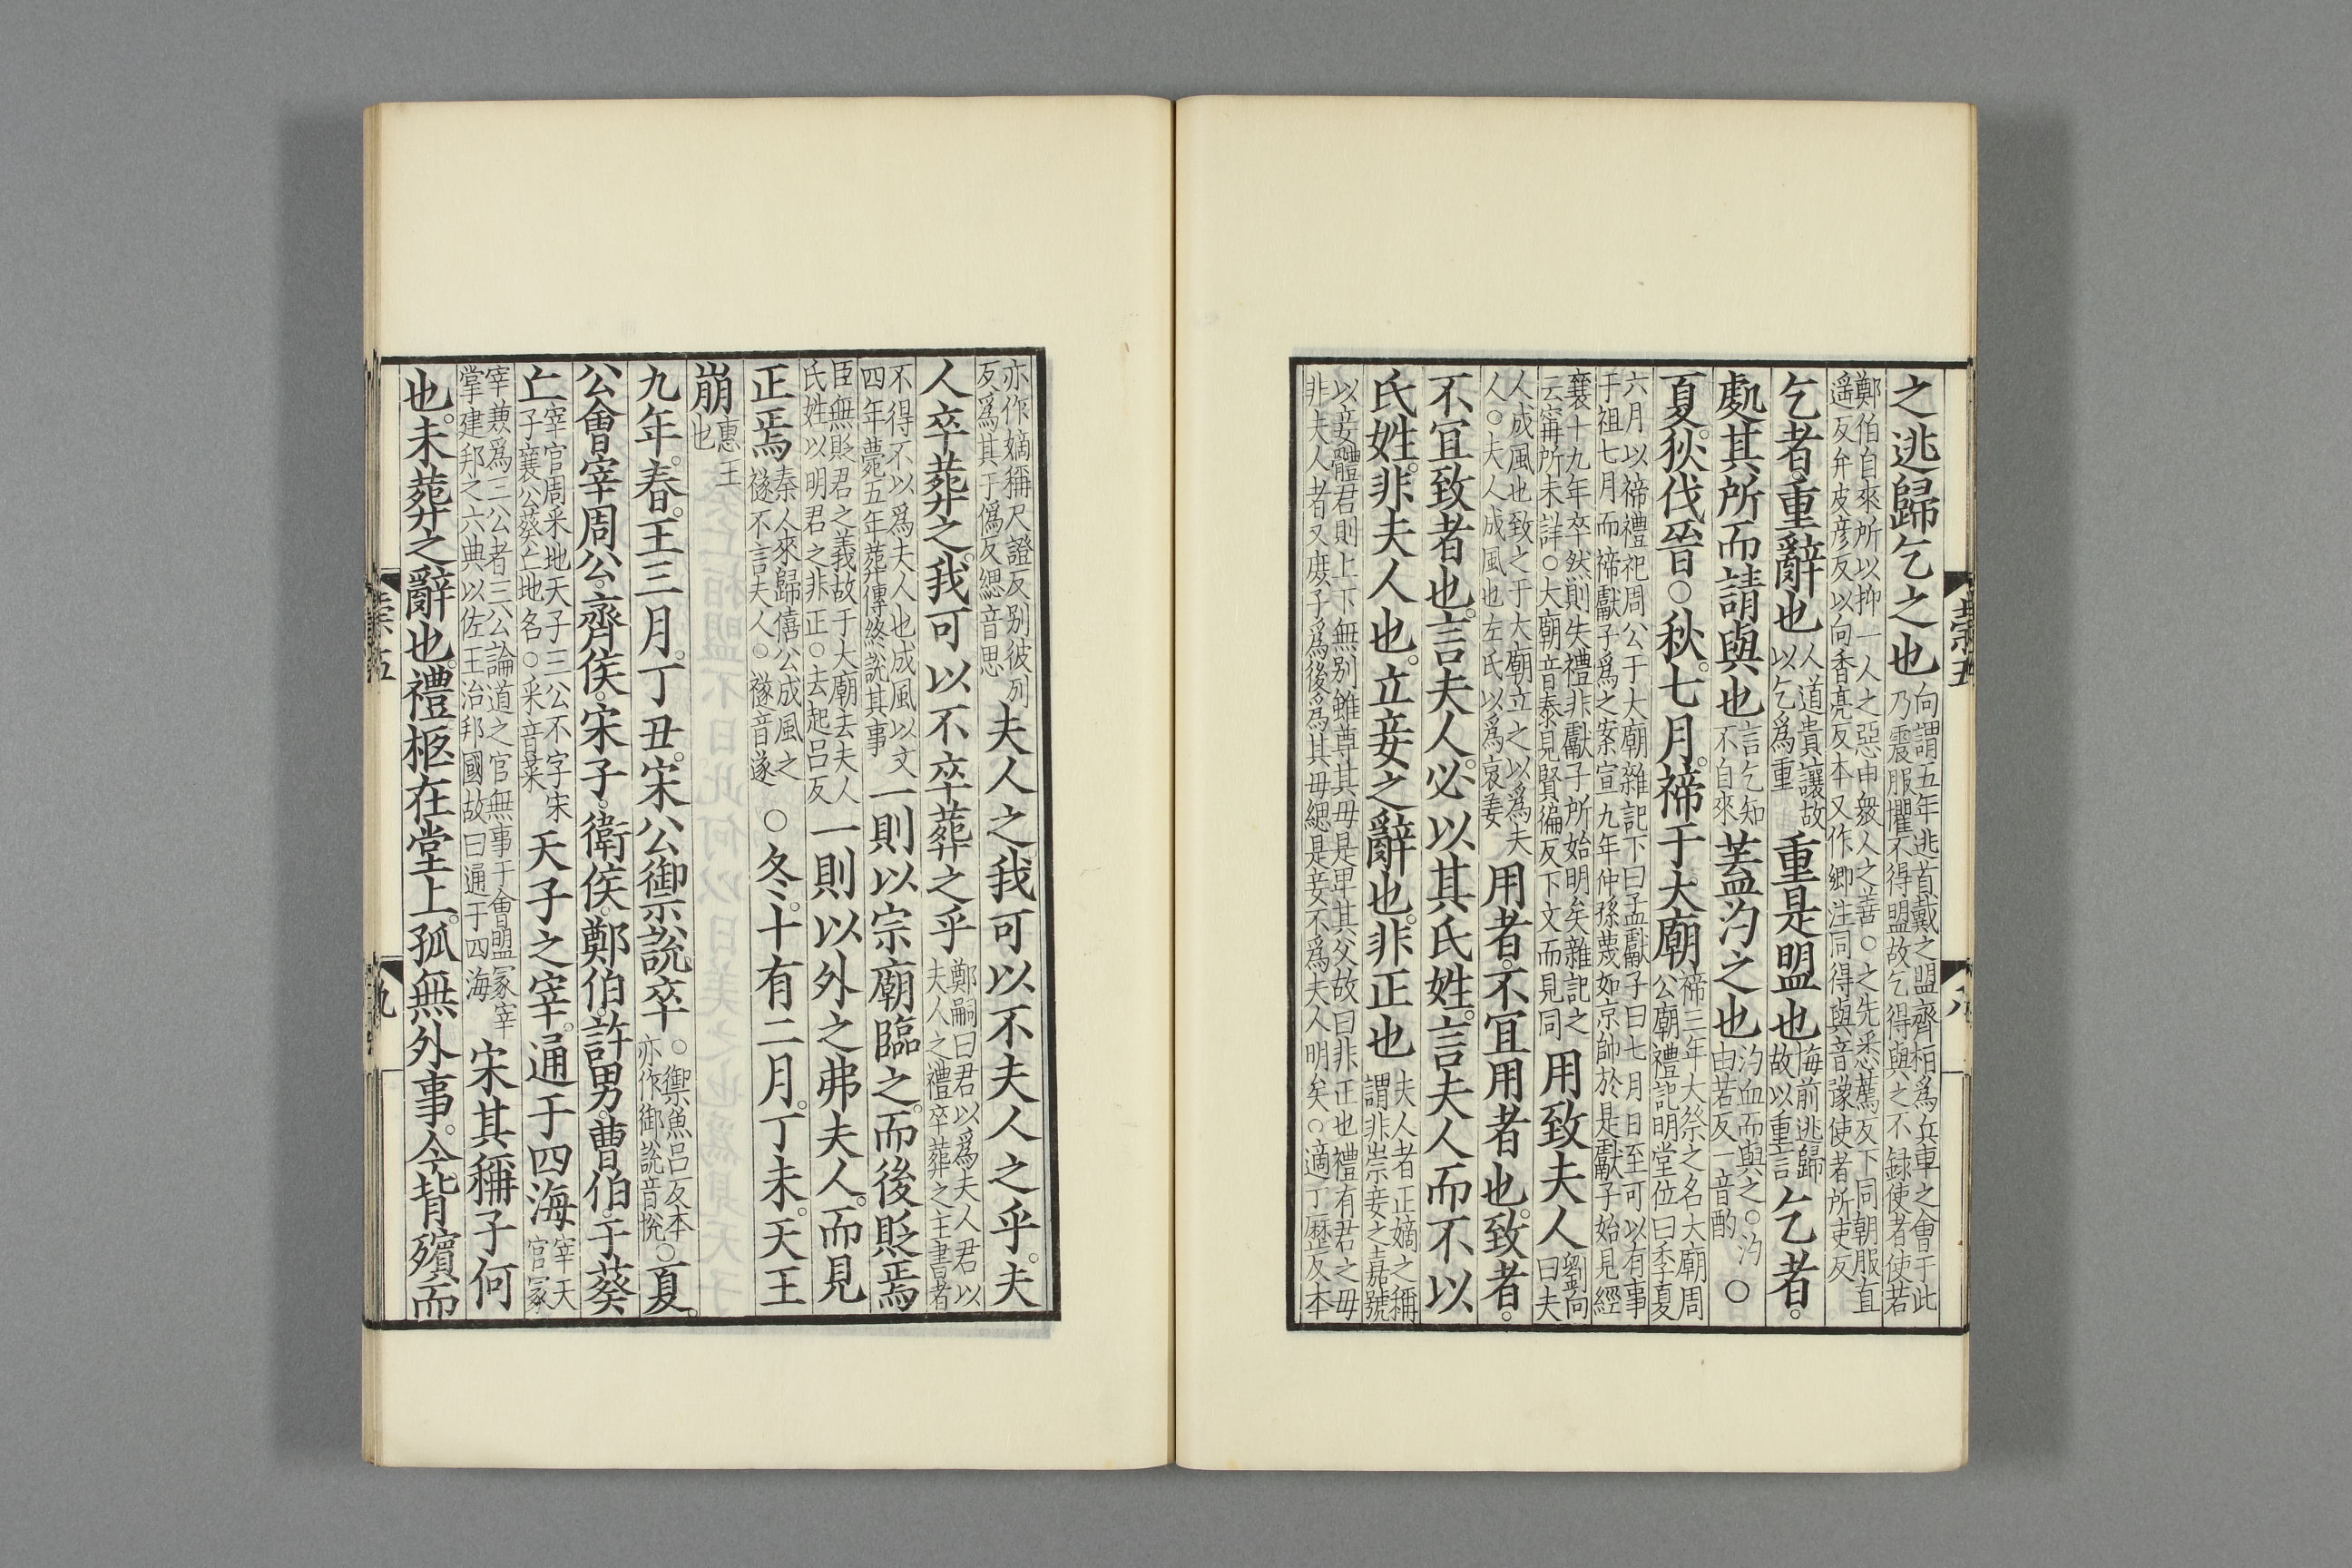 之逃歸乞之也向謂五年逃首戴之盟齊桓爲兵車之會于此
乃震服懼不得盟故乞得與之不録使者使若
鄭伯自來所以抑一人之惡申衆人之善○之先悉薦反下同朝服直
遥反弁皮彦反以向香亮反本又作鄉注同得與音豫使者所吏反
乞者。重辭也人道貴讓故以乞爲重重是盟也悔前逃歸故以重言乞者。
處其所而請與也言乞知不自來蓋汋之也汋血而與之○汋由若反一音酌○
夏。狄伐晉○秋。七月。禘于大廟禘三年大祭之名大廟周公廟禮記明堂位曰季夏
六月以禘禮祀周公于大廟雜記下曰孟獻子曰七月日至可以有事
于祖七月而禘獻子爲之案宣九年仲孫蔑如京師於是獻子始見經
襄十九年卒然則失禮非獻子所始明矣雜記之云寗所未詳○大廟音泰見賢徧反下文而見同用致夫人劉向曰夫
人成風也致之于大廟立之以爲夫人○夫人成風也左氏以爲哀姜用者。不宜用者也。致者。
不宜致者也。言夫人。必以其氏姓。言夫人而不以
氏姓。非夫人也。立妾之辭也。非正也夫人者正嫡之稱謂非崇妾之嘉號
以妾體君則上下無别雖尊其母是卑其父故曰非正也禮有君之母
非夫人者又庶子爲後爲其母緦是妾不爲夫人明矣○適丁歷反本
八
亦作嫡稱尺證反别彼列反爲其于僞反緦音思夫人之我可以不夫人之乎。夫
人卒葬之。我可以不卒葬之乎鄭嗣曰君以爲夫人君以夫人之禮卒葬之主書者
不得不以爲夫人也成風以文四年薨五年葬傳終説其事一則以宗廟臨之。而後貶焉
臣無貶君之義故于大廟去夫人氏姓以明君之非正○去起吕反一則以外之弗夫人。而見
正焉秦人來歸僖公成風之襚不言夫人○襚音遂○冬。十有二月。丁未。天王
崩惠王也
九年。春。王三月。丁丑。宋公禦説卒○禦魚吕反本亦作御説音悅○夏。
公會宰周公。齊侯。宋子。衛侯。鄭伯。許男。曹伯。于葵
丘宰官周采地天子三公不字宋子襄公葵丘地名○采音菜天子之宰。通于四海宰天官冢
宰兼爲三公者三公論道之官無事于會盟冢宰掌建邦之六典以佐王治邦國故曰通于四海宋其稱子何
也。未葬之辭也。禮。柩在堂上。孤無外事。今背殯而
九